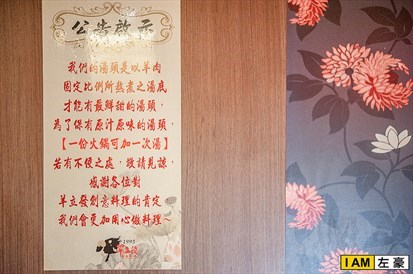 公告啟示
我們的湯頭是以羊肉
固定比例所熬煮之湯底
才能有最鮮甜的湯頭，
為了保有原汁原味的湯頭，
【一份火鍋可加一次湯】
若有不便之處，敬請見諒，
感謝各位對
羊立發創意料理的肯定
我們會更加用心做料理~
1995
I AM 左豪